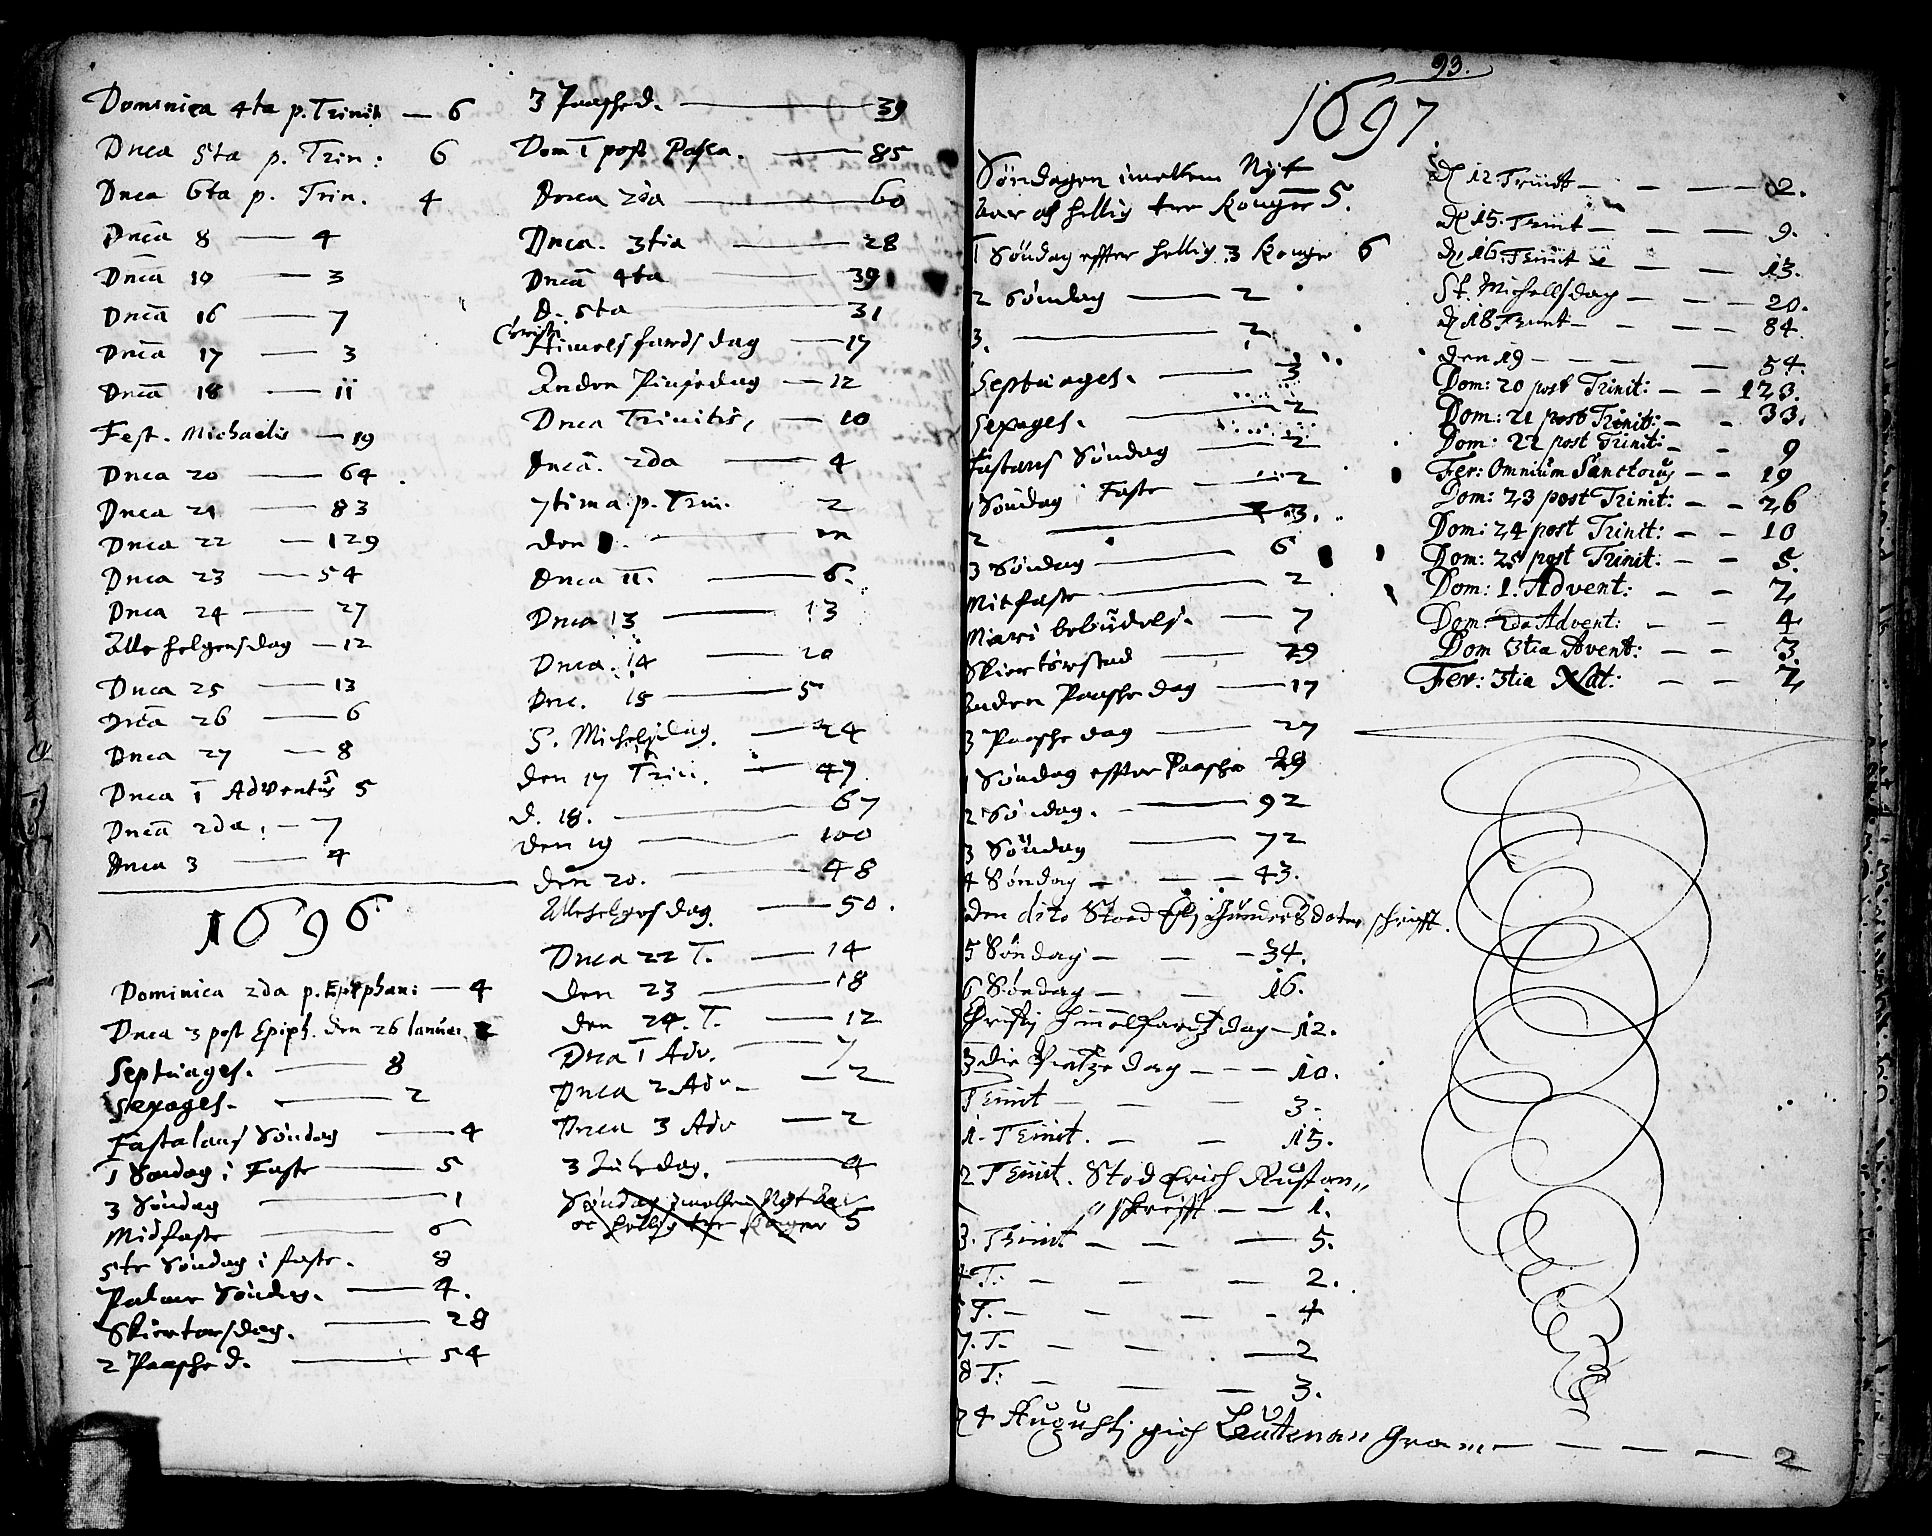 Dominica 4ta p. Trinit — 6
Dnca 5ta p. Trin: 6
Dnca 6ta p. Trin. 4
Dnca 8 — 4
Dnca 10 — 3
Dnca 16 — 7
Dnca 17 — 3
Dnca 18 — 11
Fest. Michaelis — 19
Dnca 20 — 64.
Dnca 21 — 83
Dnca 22 — 129
Dnca 23 — 54
Dnca 24 — 27
Alle helgensdag — 12
Dnca 25 — 13
Dnca 26 — 6
Dnca 27 — 8
Dnca 1 Adventus 5
Dnca 2da. — 7
Dnca 3 — 4
1696
Dominica 2da p. Epiphan: — 4
Dnca 3 post Epiph. den 26 Januar.
Septuages. — 8
Sexages. — 2
Fastalans Søndag — 4
1 Søndag i Faste — 5
3 Søndag — 1
Midfaste — 6
5te Søndag i faste. 8
Palme Søndag. — 4.
Skiertorsdag. — 28
2 Paasche d. — 54
3 Paasche d. — 39
Dom 1 post Pasca. — 85
Dnca 2da — 60
Dnca. 3tia — 28
Dnca 4ta — 39
D. 5ta — 31
Christi Himelsfards dag — 17
Anden Pinsedag — 12
Dnca Trinitis, — 10
Dnca. 2da — 4
7tima p. Trin. 2
den —
Dnca 11. — 6.
Dnca 13 — 13
Dnca. 14 — 20
Dnc. 15 — 5
S. Michelsdag. — 24
den 17 Trin. — 47
d. 18. — 67
den 19 — 100
den 20. — 48
Allehelgens dag. — 50.
Dnca 22 T. — 14
den 23 — 18
den 24. T. — 12
Dnca 1 Adv. — 7
Dnca 2 Adv. — 2
Dnca 3 Adv — 2
3 Juledag. — 4
Søndag imellem Nyt Aar
oc hellig tre Konger 5
93.
1697.
Søndagen imellem Nyt
Aar oc hellig tre Konger 5.
1 Søndag effter hellig 3 Konger 6
2 Søndag — 2
3. — 2
Septuages. — 3
Sexages. — 2
Fastans Søndag — 2
1 Søndag i Faste — 2
2 — 3.
3 Søndag — 6
Mitfaste — 2
Mari bebudels. — 7
Skiertorsdag — 29
Anden Paasche dag — 17
3 Paasche dag — 27
1 Søndag effter Paasche 29
2 Søndag. — 92
3 Søndag — 72
4 Søndag — — — 43.
den dito Stoed Gunders doter schrifft.
5 Søndag — — — 34.
6 Søndag — — 16.
Christj Himelfartz dag — 12.
3die Pintze dag — — — 10.
Trinit — — 3.
1. Trinit. — — 15.
2 Trinit. Stod Erich Rustan,,
,, skrifft — — 1.
3. Trinit — — — 5.
4 T: — — — 2.
5 T. — — — 4
7. T. — — — 2
8 T: — — — 3.
24 Augustj gich Leutenan Gram — — — — 2
D 12. Trinit — — — 2.
D 15. Trinit — — — 9.
D 16. Trinit — — 13.
St. Michelsdag — — — 20.
D 18 Trinit — — — — 84.
den 19 — — — 54.
Dom: 20 post Trinit: — — 123.
Dom: 21 post Trinit: — — 33.
Dom: 22 post Trinit: — — 9
Fer: Omnium Sanctorũ — — 19
Dom: 23 post Trinit: — — 26
Dom: 24 post Trinit: — — 10
Dom: 25 post Trinit: — — 5.
Dom: 1. Advent: — — 2
Dom: 2da Advent: — — 4
Dom 3tia Avent: — — 3.
Fer: 3tia Nat: — — 2